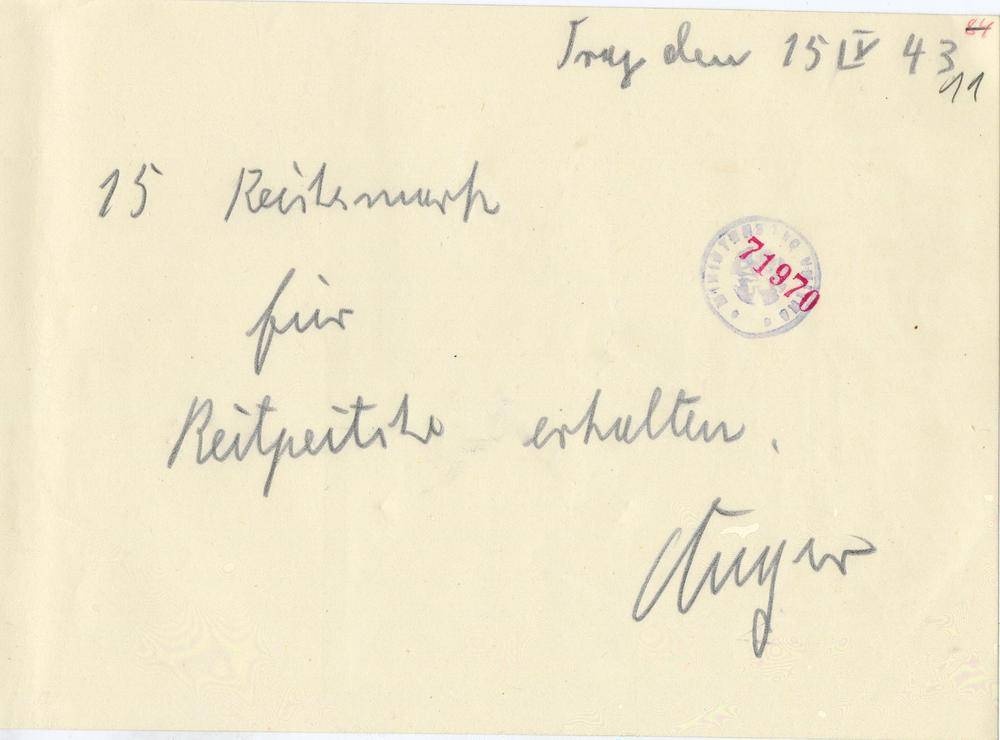 84
Prag den 15 IV 43
11
15 Reichsmark
71970
für
Reitpeitsche erhalten.